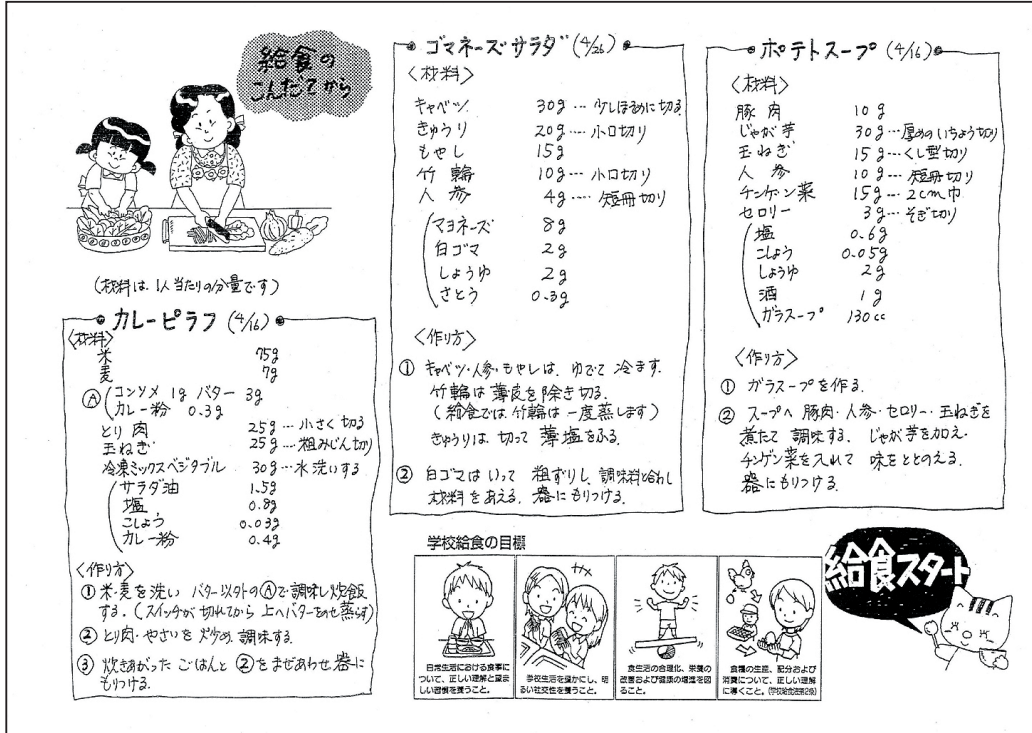 給食の
こんだてから
(材料は、1人当たりの分量です)
カレーピラフ (4/16)
〈材料〉
米 75g
麦 7g
Ⓐ(コンソメ 1g バター 3g
カレー粉 0.3g
とり肉 25g…小さく切る
玉ねぎ 25g…粗みじん切り
冷凍ミックスベジタブル 30g…水洗いする
サラダ油 1.5g
塩 0.8g
こしょう 0.03g
カレー粉 0.4g
〈作り方〉
① 米・麦を洗い バター以外のⒶで調味し炊飯
する。(スイッチが切れてから上へバターをのせ蒸らす)
② とり肉・やさいを炒め、調味する。
③ 炊きあがった ごはんと ②をまぜあわせ、器に
もりつける。
ゴマネーズサラダ (4/26)
〈材料〉
キャベツ 30g…少しほそめに切る
きゅうり 20g…小口切り
もやし 15g
竹輪 10g…小口切り
人参 4g…短冊切り
マヨネーズ 8g
白ゴマ 2g
しょうゆ 2g
さとう 0.3g
〈作り方〉
① キャベツ・人参・もやしは、ゆでて 冷ます。
竹輪は 薄皮を除き切る。
(給食では、竹輪は一度蒸します)
きゅうりは、切って 薄塩をふる。
② 白ゴマは いって 粗ずりし、調味料と合わし
材料をあえる。器にもりつける。
ポテトスープ (4/16)
〈材料〉
豚肉 10g
じゃが芋 30g…厚めのいちょう切り
玉ねぎ 15g…くし型切り
人参 10g…短冊切り
チンゲン菜 15g…2cm巾
セロリー 3g…そぎ切り
塩 0.6g
こしょう 0.05g
しょうゆ 2g
酒 1g
ガラスープ 130cc
〈作り方〉
① ガラスープを作る。
② スープへ 豚肉・人参・セロリー・玉ねぎを
煮たて 調味する。じゃが芋を加え、
チンゲン菜を入れて 味をととのえる。
器にもりつける。
学校給食の目標
日常生活における食事に
ついて、正しい理解と望ま
しい習慣を養うこと。
学校生活を豊かにし、明
るい社交性を養うこと。
食生活の合理化、栄養の
改善および健康の増進を図
ること。
食糧の生産、配分および
消費について、正しい理解
に導くこと。(学校給食法第2条)
給食スタート